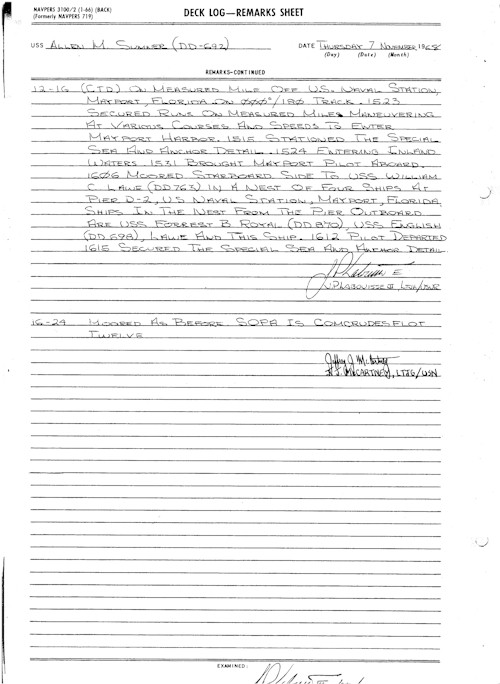 NAVPERS 3100/2 (1-66) (BACK)
(Formerly NAVPERS 719)
DECK LOG—REMARKS SHEET
USS ALLEN M. SUMNER (DD-692) DATE THURSDAY 7 NOVEMBER, 1968
(Day) (Date) (Month)
REMARKS-CONTINUED
12-16 (CTD) ON MEASURED MILE OFF U.S. NAVAL STATION,
MAYPORT, FLORIDA ON 000°/180 TRACK. 1523
SECURED RUNS ON MEASURED MILES MANEUVERING
AT VARIOUS COURSES AND SPEEDS TO ENTER
MAYPORT HARBOR. 1515 STATIONED THE SPECIAL
SEA AND ANCHOR DETAIL. 1524 ENTERING INLAND
WATERS. 1531 BROUGHT MAYPORT PILOT ABOARD.
1606 MOORED STARBOARD SIDE TO USS WILLIAM
C. LAWE (DD763) IN A NEST OF FOUR SHIPS AT
PIER D-2, U.S NAVAL STATION, MAYPORT, FLORIDA.
SHIPS IN THE NEST FROM THE PIER OUTBOARD
ARE USS FORREST B ROYAL (DD872), USS ENGLISH
(DD 696), LAWE AND THIS SHIP. 1612 PILOT DEPARTED
1615 SECURED THE SPECIAL SEA AND ANCHOR DETAIL
J.P. LABOUISSE II,
16-24 MOORED AS BEFORE. SOPA IS COMCRUDESFLOT
TWELVE
Jeffrey J. McCartney
J.J. MCCARTNEY, LTJG/USN
EXAMINED: